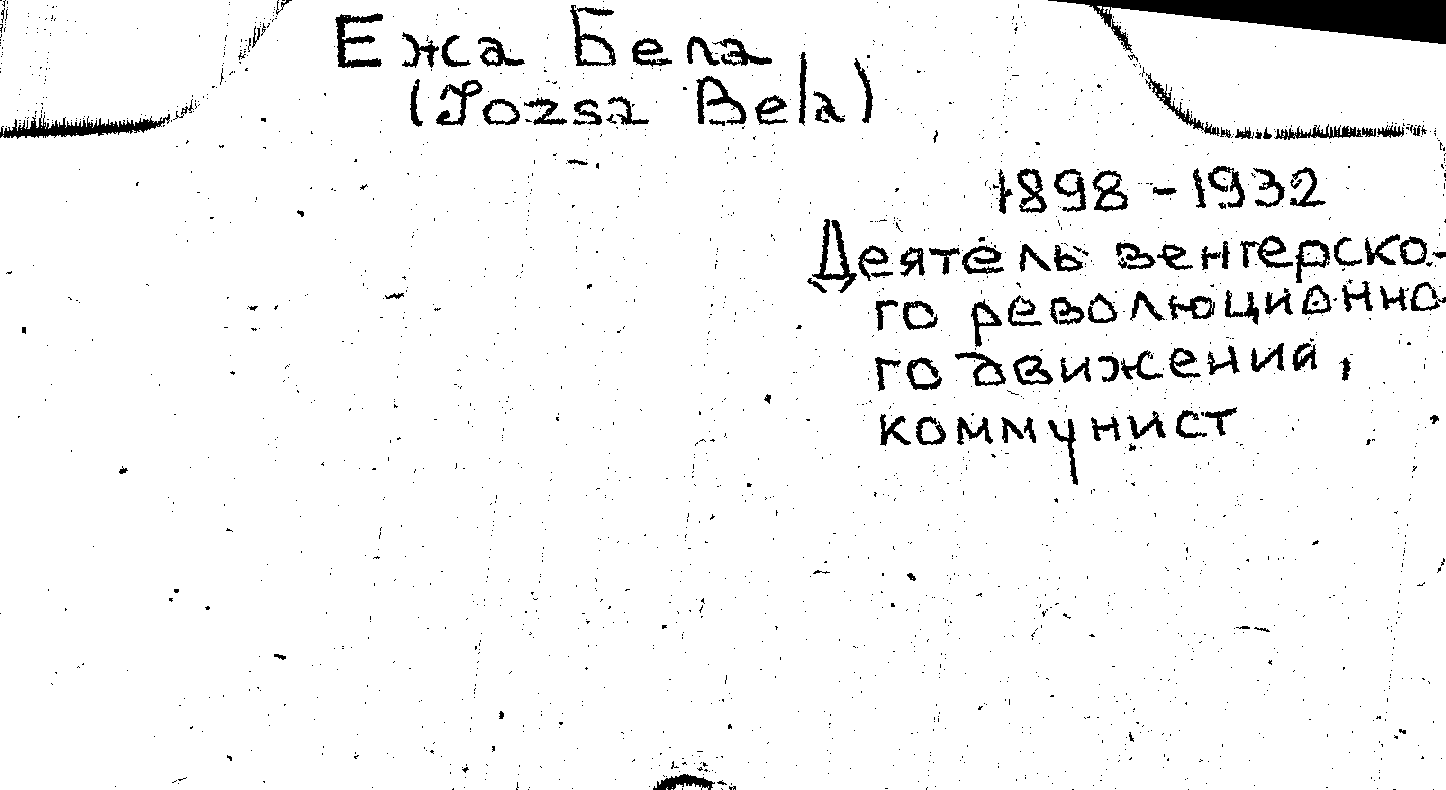 Ежа Бела
(Jozsa Bela)
1898-1932
Деятель венгерско-
го революционно-
го движения,
коммунист